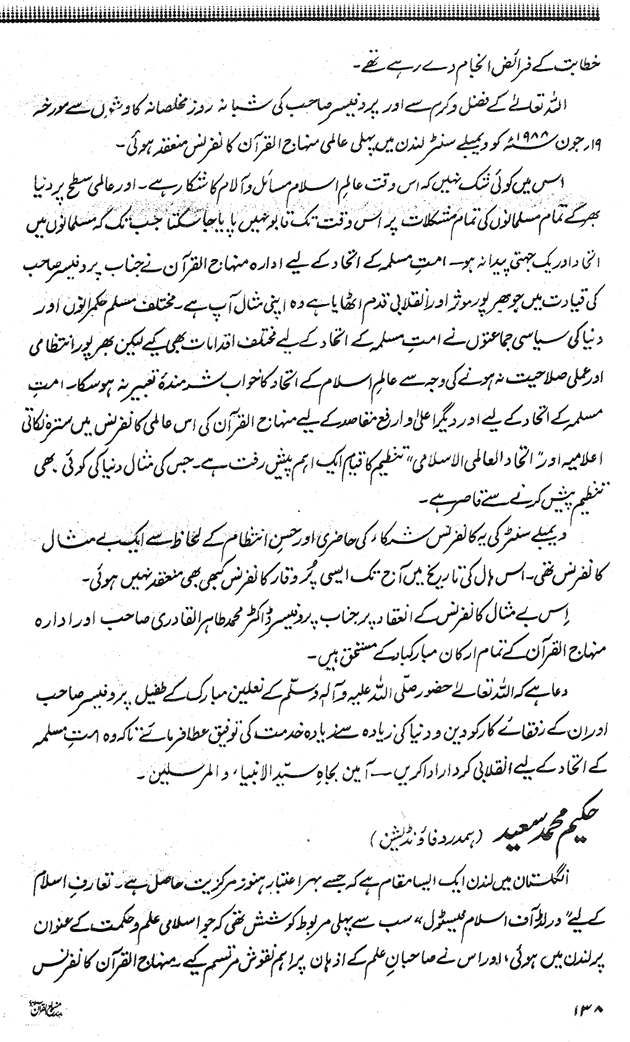 خطابت کے فرائض انجام دے رہے تھے۔
اللہ تعالےٰ کے فضل و کرم سے اور پروفیسر صاحب کی شبانہ روز مخلصانہ کاوشوں سے مورخہ
۱۹ر جون ۱۹۸۸ء کو ویمبلے سنٹر لندن میں پہلی عالمی منہاج القرآن کانفرنس منعقد ہوئی۔
اس میں کوئی شک نہیں کہ اس وقت عالمِ اسلام مسائل و آلام کا شکار ہے۔ اور عالمی سطح پر دنیا
بھر کے تمام مسلمانوں کی تمام مشکلات پر اس وقت تک قابو نہیں پایا جا سکتا جب تک کہ مسلمانوں میں
اتحاد اور یک جہتی پیدا نہ ہو۔ امتِ مسلمہ کے اتحاد کے لیے ادارہ منہاج القرآن نے جناب پروفیسر صاحب
کی قیادت میں جو بھرپور موثر اور انقلابی قدم اٹھایا ہے وہ اپنی مثال آپ ہے۔ مختلف مسلم حکمرانوں اور
دنیا کی سیاسی جماعتوں نے امتِ مسلمہ کے اتحاد کے لیے مختلف اقدامات بھی کیے لیکن بھرپور انتظامی
اور عملی صلاحیت نہ ہونے کی وجہ سے عالمِ اسلام کے اتحاد کا خواب شرمندۂ تعبیر نہ ہو سکا۔ امتِ
مسلمہ کے اتحاد کے لیے اور دیگر اعلیٰ و ارفع مقاصد کے لیے منہاج القرآن کی اس عالمی کانفرنس میں سترہ نکاتی
اعلامیہ اور "اتحاد العالمی الاسلامی" تنظیم کا قیام ایک اہم پیش رفت ہے۔ جس کی مثال دنیا کی کوئی بھی
تنظیم پیش کرنے سے قاصر ہے۔
ویمبلے سنٹر کی یہ کانفرنس شرکاء کی حاضری اور حسنِ انتظام کے لحاظ سے ایک بے مثال
کانفرنس تھی۔ اس ہال کی تاریخ میں آج تک ایسی پُر وقار کانفرنس کبھی بھی منعقد نہیں ہوئی۔
اِس بے مثال کانفرنس کے انعقاد پر جناب پروفیسر ڈاکٹر محمد طاہر القادری صاحب اور ادارہ
منہاج القرآن کے تمام ارکان مبارکباد کے مستحق ہیں۔
دعا ہے کہ اللہ تعالےٰ حضور صلی اللہ علیہ وآلہ وسلم کے نعلین مبارک کے طفیل پروفیسر صاحب
اور ان کے رفقائے کار کو دین و دنیا کی زیادہ سے زیادہ خدمت کی توفیق عطا فرمائے تاکہ وہ امتِ مسلمہ
کے اتحاد کے لیے انقلابی کردار ادا کریں — آمین بجاہِ سیّد الانبیاء والمرسلین۔
حکیم محمد سعید (ہمدرد فاؤنڈیشن)
انگلستان میں لندن ایک ایسا مقام ہے کہ جسے بہر اعتبار ہنوز مرکزیت حاصل ہے۔ تعارفِ اسلام
کے لیے "ورلڈ آف اسلام فیسٹول" سب سے پہلی مربوط کوشش تھی کہ جو اسلامی علم و حکمت کے عنوان
پر لندن میں ہوئی، اور اس نے صاحبانِ علم کے اذہان پر اہم نقوش مرتسم کیے۔ منہاج القرآن کانفرنس
۱۳۸
منہاج القرآن